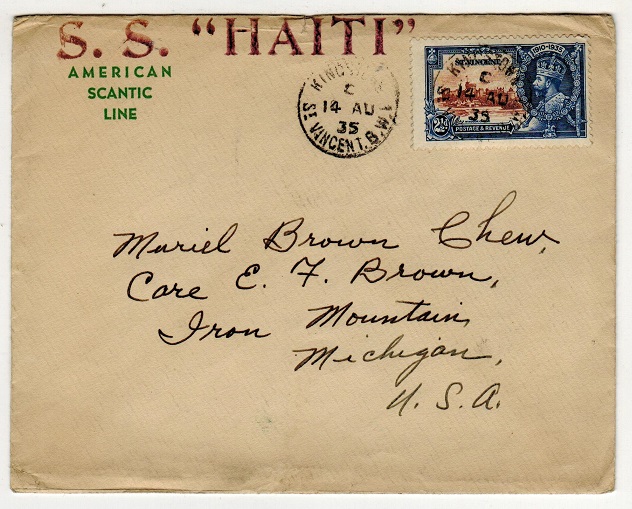 S. S. "HAITI"
AMERICAN
SCANTIC
LINE
KINGSTOWN
C
14 AU
35
ST VINCENT. B.W.I
ST. VINCENT
1910-1935
KINGSTOWN
C
14 AU
35
2½d
POSTAGE & REVENUE
Muriel Brown Chew,
Care E. F. Brown,
Iron Mountain,
Michigan,
U. S. A.